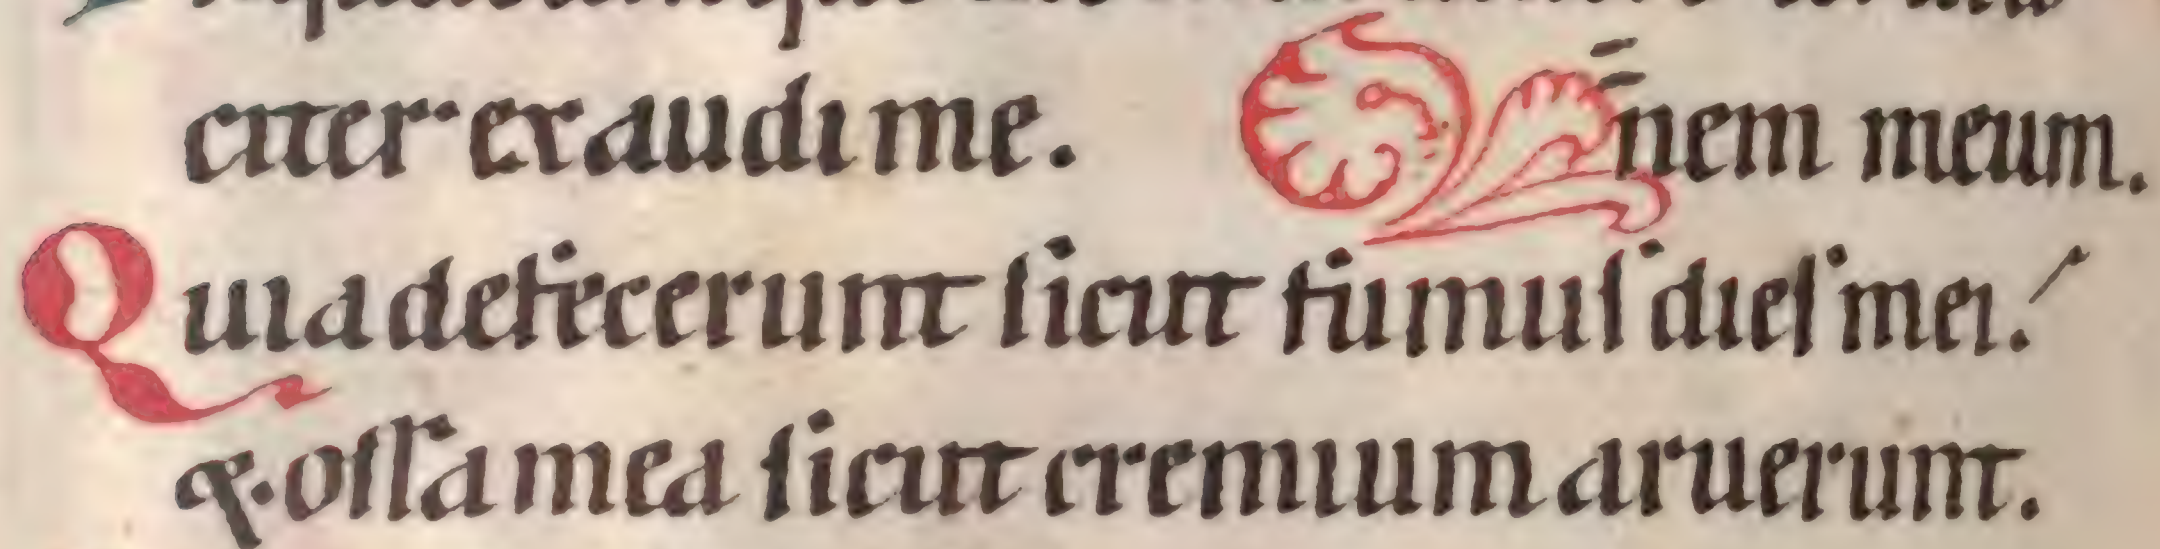 citer exaudi me. nem meum.
Quia defecerunt sicut fumus dies mei.
⁊ ossa mea sicut cremium aruerunt.